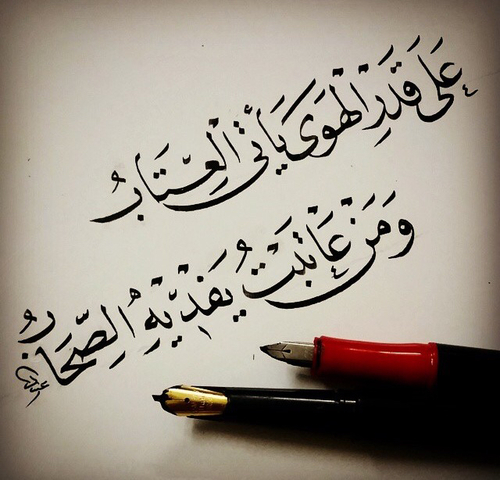 عَلَى قَدَرِ الْهَوَى يَأْتِي الْعِتَابُ
وَمَنْ عَاتَبْتُ يَفْدِيهِ الصِّحَابُ